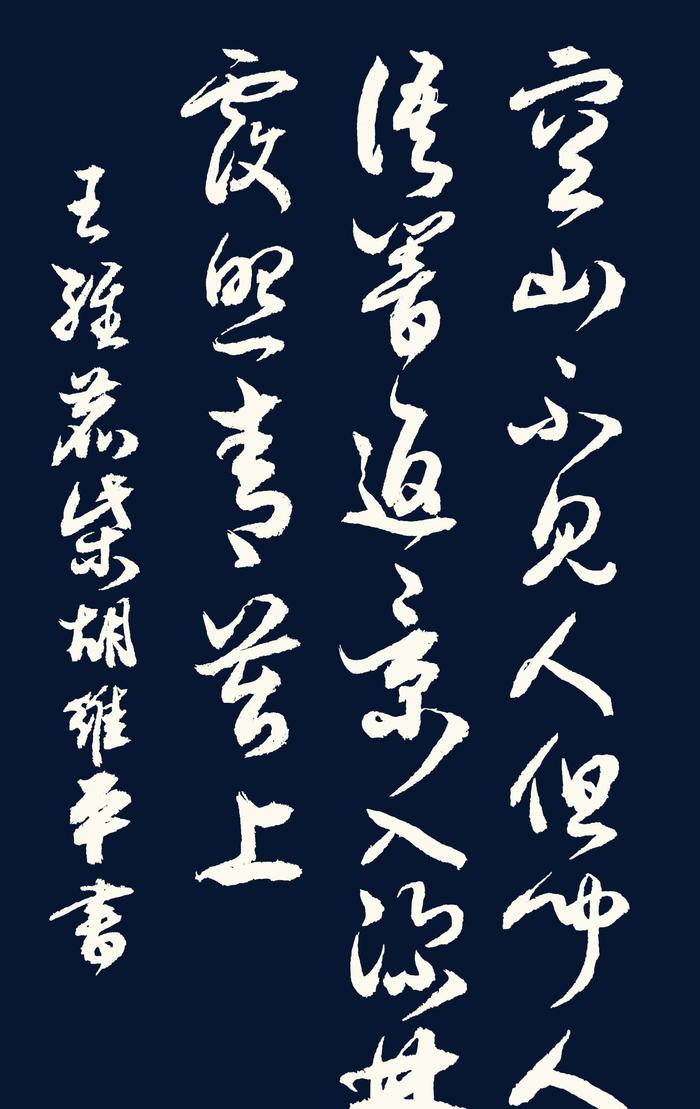 空山不見人但聞人
語響返景入深林
覆照青苔上
王維鹿柴胡維平書